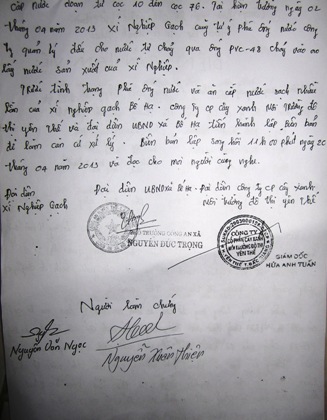 cấp nước đoạn từ cọc 10 đến cọc 76. Tại hiện trường ngày 02
tháng 04 năm 2013 xí Nghiệp Gạch cung tự ý phá ống nước công
ty quản lý đấu cho nước tự chảy qua ống PVC-48 chảy vào ao
lấy nước sản xuất của xí nghiệp.
Trước tình trạng phá ống nước và ăn cắp nước sạch nhiều
lần của xí nghiệp gạch Bố Hạ. Công ty CP cây xanh Môi trường đô
thị yên Thế và đại diện UBND xã Bố Hạ tiến hành lập biên bản
để làm căn cứ xử lý. Biên bản lập song hồi 11h00 phút ngày 20
tháng 04 năm 2013 và đọc cho mọi người cùng nghe.
Đại diện
xí Nghiệp Gạch
Đại diện UBND xã Bố Hạ
Đại diện công ty CP cây xanh
Môi trường đô thị yên Thế
TRƯỞNG CÔNG AN XÃ
NGUYỄN ĐỨC TRỌNG
CÔNG TY
CỔ PHẦN CÂY XANH
MÔI TRƯỜNG ĐÔ THỊ
YÊN THẾ
GIÁM ĐỐC
HỨA ANH TUẤN
Người làm chứng
Nguyễn Văn Ngọc
Nguyễn Xuân Thiện